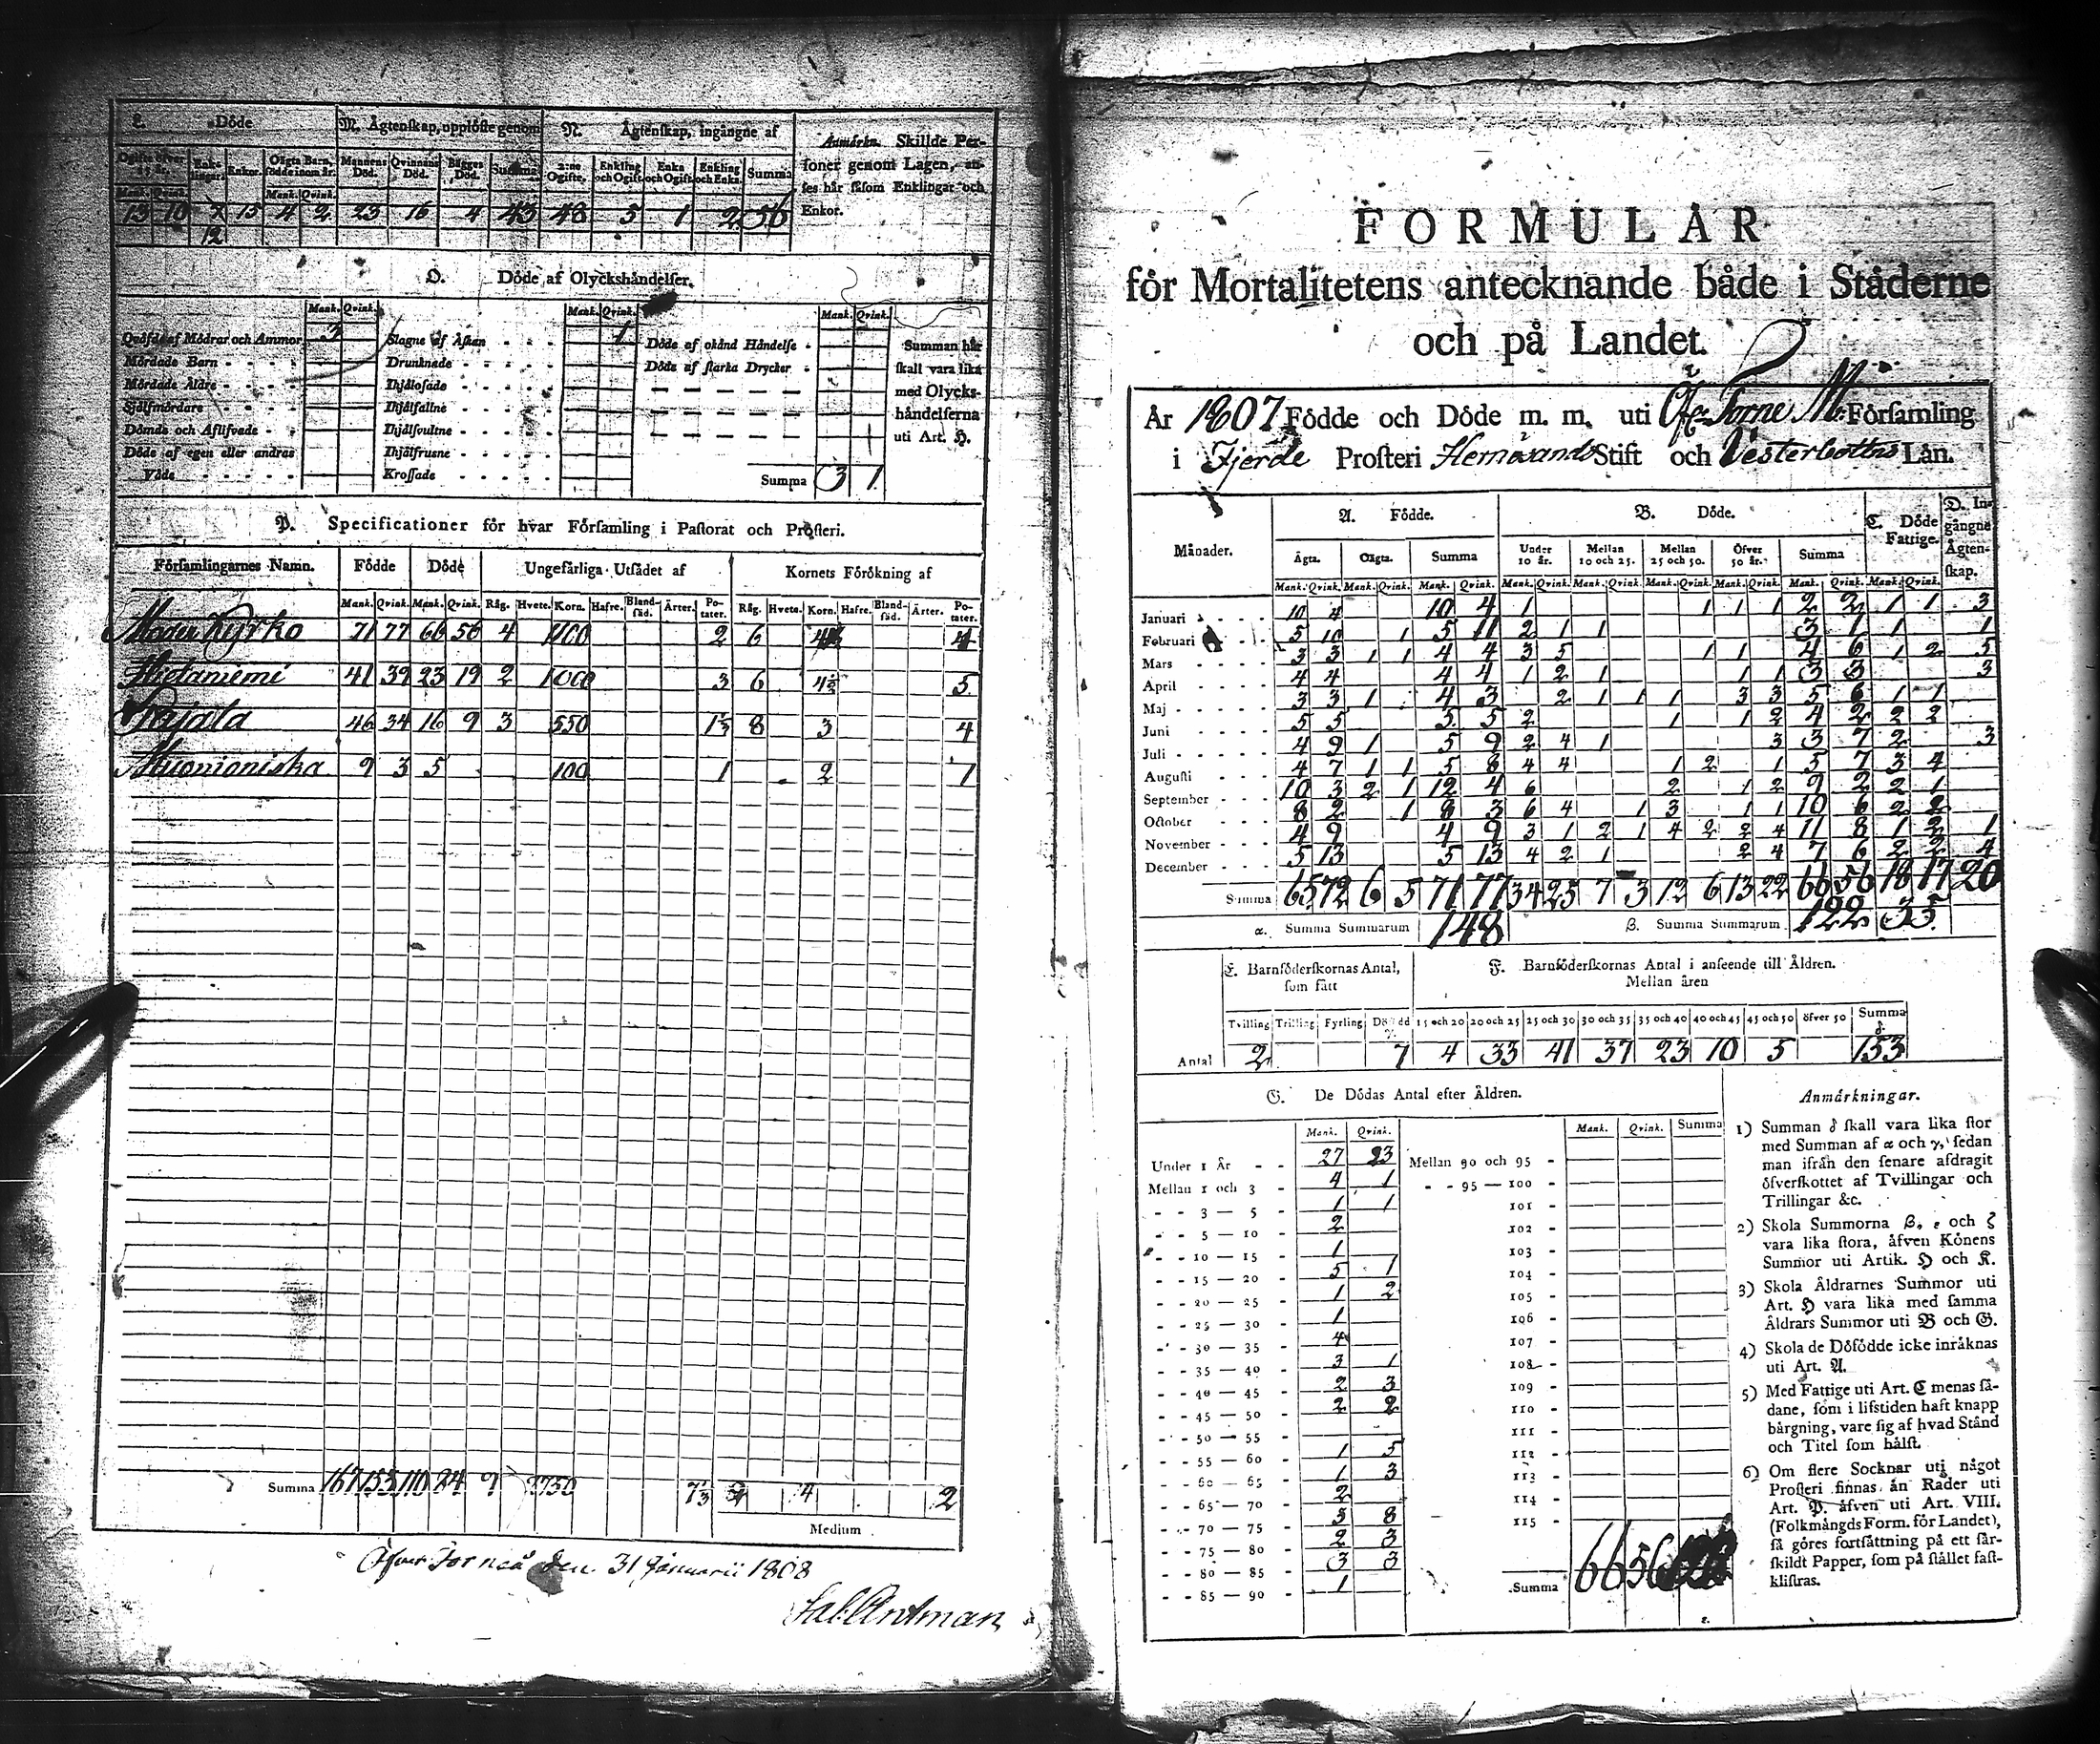 L. Döde
M. Ägtenskap, upplöste genom
N. Ägtenskap, ingångne af
Anmärkn. Skillde Personer
genom Lagen, anses
här såsom Enklingar och
Enkor.
Ogifte öfver 15 år. Enklingar Enkor. Oägta Barn, födde inom år. Mannens Död. Qvinnans Död. Bägges Död. Summa 2:ne Ogifte. Enkling och Ogift. Enka och Ogift. Enkling och Enka. Summa
Mank. Qvink. Mank. Qvink.
13 10 7 15 4 2 23 16 4 43 48 5 1 2 56
12
O. Döde af Olyckshändelser.
Mank. Qvink. Mank. Qvink. Mank. Qvink.
Qväfde af Mödrar och Ammor 3 Slagne af Åskan 1 Döde af okänd Händelse Summan här
Mördade Barn Drunknade Döde af starka Drycker skall vara lika
Mördade Äldre Ihjälosade med Olycks-
Sjelfmördare Ihjälfallne händelserna
Dömde och Aflifvade Ihjälsvultne uti Art. H.
Döde af egen eller andras Ihjälfrusne
Våde Krossade Summa 3 1
P. Specificationer för hvar Församling i Pastorat och Prosteri.
Församlingarnes Namn. Födde Döde Ungefärliga Utsädet af Kornets Förökning af
Mank. Qvink. Mank. Qvink. Råg. Hvete. Korn. Hafre. Bland-säd. Ärter. Po-tater. Råg. Hvete. Korn. Hafre. Bland-säd. Ärter. Po-tater.
Moder Kyrko 71 77 66 56 4 2 6
Hietaniemi 41 39 23 19 2 1000 3 6 4½ 5
46 34 16 9 3 550 1⅓ 8 3 4
Muonioniska 9 3 5 100 1 2 1
Summa 167 153 110 84 9 7⅓ 4 2
Medium
Öfver Torneå den 31 Januarii 1808
FORMULÄR
för Mortalitetens antecknande både i Städerne
och på Landet.
År 1807 Födde och Döde m. m. uti Öfr Torne M. Församling
i Fjerde Prosteri Hernösands Stift och Vesterbottns Län.
Månader. A. Födde. B. Döde. C. Döde Fattige. D. Ingångne Ägtenskap.
Ägta. Oägta. Summa Under 10 år. Mellan 10 och 25. Mellan 25 och 50. Öfver 50 år. Summa
Mank. Qvink. Mank. Qvink. Mank. Qvink. Mank. Qvink. Mank. Qvink. Mank. Qvink. Mank. Qvink. Mank. Qvink. Mank. Qvink.
Januari 10 4 10 4 1 1 1 1 2 2 1 1 3
Februari 5 10 1 5 11 2 1 1 3 1 1 1
Mars 3 3 1 1 4 4 3 5 1 1 4 6 1 2 5
April 4 4 4 4 1 2 1 1 1 3 3 3
Maj 3 3 1 4 3 2 1 1 1 3 3 5 6 1 1
Juni 5 5 5 5 2 1 1 2 4 2 2 2
Juli 4 9 1 5 9 2 4 1 3 3 7 2 3
Augusti 4 7 1 1 5 8 4 4 1 2 1 5 7 3 4
September 10 3 2 1 12 4 6 2 1 2 9 2 2 1
October 8 2 1 8 3 6 4 1 3 1 1 10 6 2 2
November 4 9 4 9 3 1 2 1 4 2 2 4 11 8 1 2 1
December 5 13 5 13 4 2 1 2 4 7 6 2 2 4
Summa 65 72 6 5 71 77 34 25 7 3 12 6 13 22 66 56 18 17 20
α. Summa Summarum 148 β. Summa Summarum 122 35
E. Barnföderskornas Antal, som fått
F. Barnföderskornas Antal i anseende till Åldren.
Mellan åren
Tvilling Trilling Fyrling Dödfödd 15 och 20 20 och 25 25 och 30 30 och 35 35 och 40 40 och 45 45 och 50 öfver 50 Summa δ
Antal 2 7 4 33 41 37 23 10 5 153
G. De Dödas Antal efter Åldren.
Mank. Qvink. Mank. Qvink. Summa
Under 1 År 27 23 Mellan 90 och 95
Mellan 1 och 3 4 1 95 — 100
3 — 5 1 1 101
5 — 10 2 102
10 — 15 1 103
15 — 20 5 1 104
20 — 25 1 2 105
25 — 30 1 106
30 — 35 4 107
35 — 40 3 1 108
40 — 45 2 3 109
45 — 50 2 2 110
50 — 55 111
55 — 60 1 5 112
60 — 65 1 3 113
65 — 70 2 114
70 — 75 3 8 115
75 — 80 2 3
80 — 85 3 3
85 — 90 1 Summa 66 56
Anmärkningar.
1) Summan δ skall vara lika stor
med Summan af α och γ, sedan
man ifrån den senare afdragit
öfverskottet af Tvillingar och
Trillingar &c.
2) Skola Summorna β, ε och ζ
vara lika stora, äfven Könens
Summor uti Artik. H och K.
3) Skola Åldrarnes Summor uti
Art. H vara lika med samma
Åldrars Summor uti B och G.
4) Skola de Döfödde icke inräknas
uti Art. A.
5) Med Fattige uti Art. C menas så-
dane, som i lifstiden haft knapp
bärgning, vare sig af hvad Stånd
och Titel som hälst.
6) Om flere Socknar uti något
Prosteri finnas än Rader uti
Art. P. äfven uti Art. VIII.
(Folkmängds Form. för Landet),
så göres fortsättning på ett sär-
skildt Papper, som på stället fast-
klistras.